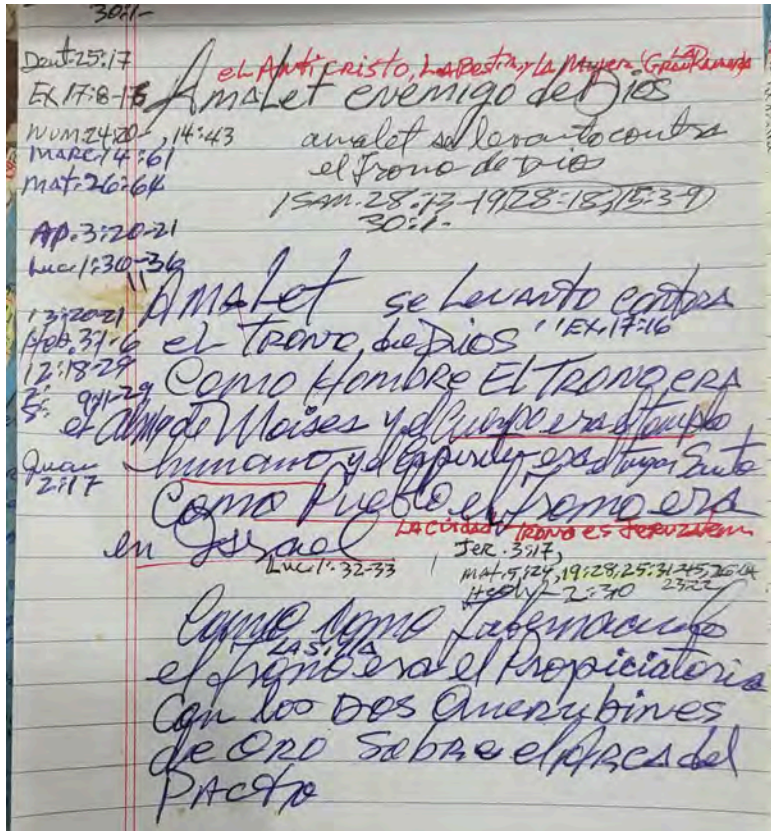 30:1-
Deut.25:17
EX.17:8-16
NUM.24:20-, 14:43
MARC.14:61
MAT.26:64
AP.3:20-21
Luc.1:30-36
13:20-21
Heb.3:1-6
12:18-29
9:11-29
Juan
2:17
eL Anticristo, La Bestia, y La Mujer (LA Gran Ramera
AmaLet enemigo de Dios
amalet se levanto contra
el Trono de Dios
1 SAM.28:13-19, 28:18, 15:3-9
30:1-
"AmaLet se Levanto contra
el Trono de Dios" EX.17:16
Como Hombre El Trono era
el alma de Moises y el Cuerpo era el templo
humano y el Espiritu era el lugar Santo
Como Pueblo el Trono era
LA CiUDAD TRONO es JeRUZALem
en Israel
Luc.1:32-33
Jer.3:17,
MAT.5:24, 19:28, 25:31-45, 26:64
23:22
Hech-2:30
Como Como Tabernaculo
LA SiLLA
el Trono era el Propiciatorio
Con los DOS Querubines
de ORO Sobre el ARCA del
PACto